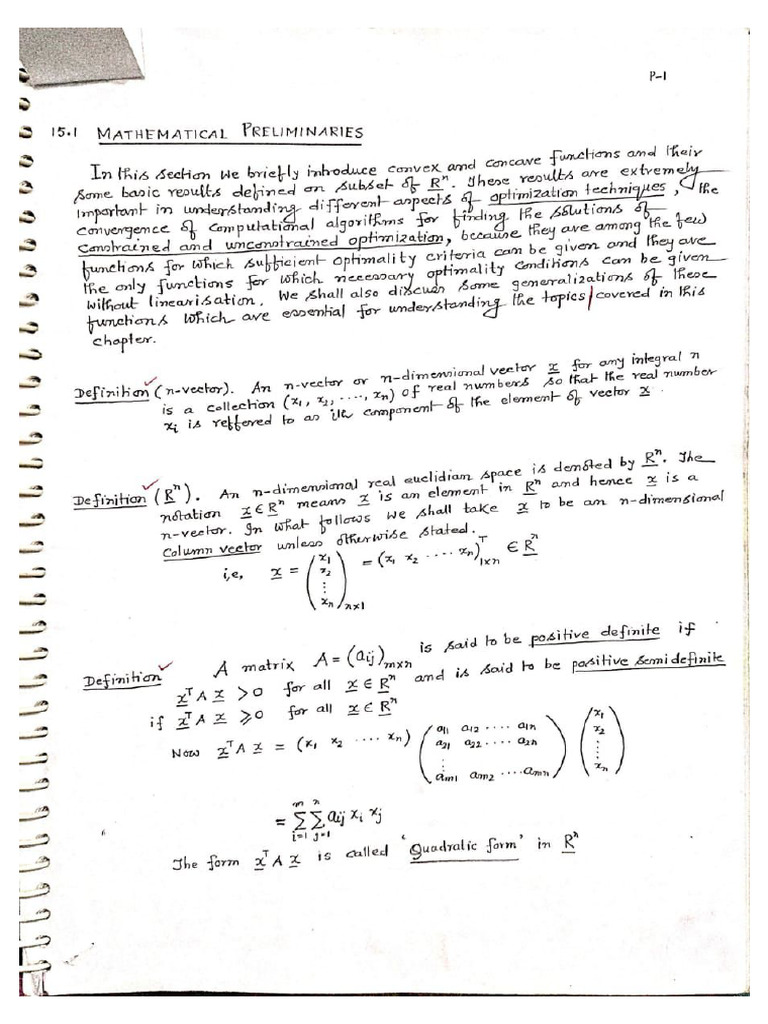 P-1
15.1 MATHEMATICAL PRELIMINARIES
In this section we briefly introduce convex and concave functions and their
some basic results defined on subset of Rⁿ. These results are extremely
important in understanding different aspects of optimization techniques, the
convergence of computational algorithms for finding the solutions of
constrained and unconstrained optimization, because they are among the few
functions for which sufficient optimality criteria can be given and they are
the only functions for which necessary optimality conditions can be given
without linearisation. We shall also discuss some generalizations of these
functions which are essential for understanding the topics/covered in this
chapter.
Definition (n-vector). An n-vector or n-dimensional vector x for any integral n
is a collection (x₁, x₂, ...., xₙ) of real numbers so that the real number
xᵢ is reffered to as ith component of the element of vector x.
Definition (Rⁿ). An n-dimensional real euclidian space is denoted by Rⁿ. The
notation x ∈ Rⁿ means x is an element in Rⁿ and hence x is a
n-vector. In what follows we shall take x to be an n-dimensional
column vector unless otherwise stated.
i,e, x = (x₁ x₂ ⋮ xₙ)ₙₓ₁ = (x₁ x₂ .... xₙ)ᵀ₁ₓₙ ∈ Rⁿ
Definition A matrix A = (aᵢⱼ)ₘₓₙ is said to be positive definite if
xᵀA x > 0 for all x ∈ Rⁿ and is said to be positive semidefinite
if xᵀA x ⩾ 0 for all x ∈ Rⁿ
Now xᵀA x = (x₁ x₂ .... xₙ) (a₁₁ a₁₂ .... a₁ₙ a₂₁ a₂₂ .... a₂ₙ ⋮ aₘ₁ aₘ₂ .... aₘₙ) (x₁ x₂ ⋮ xₙ)
= ᵐ∑ᵢ₌₁ ⁿ∑ⱼ₌₁ aᵢⱼ xᵢ xⱼ
The form xᵀA x is called 'Quadralic form' in Rⁿ